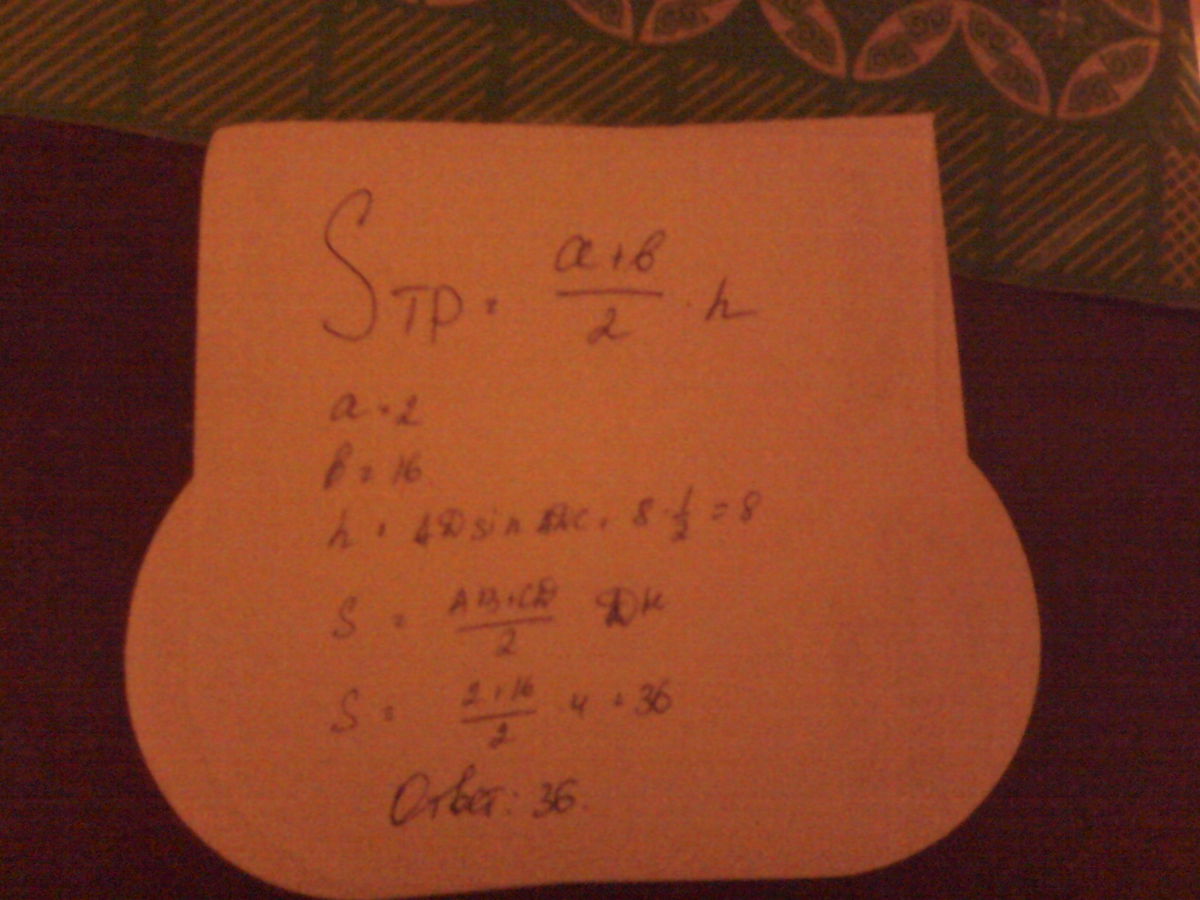 Sтр = a+b/2 · h
a = 2
b = 16
h = AD sin ADC = 8 · 1/2 = 8
S = AB+CD/2 DH
S = 2+16/2 · 4 = 36
Ответ: 36.